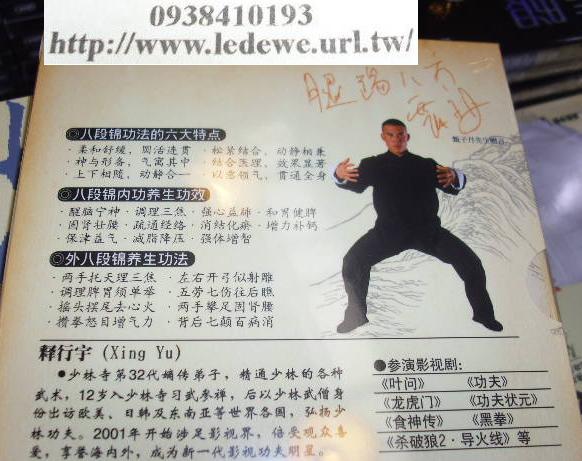 0938410193
http://www.ledewe.url.tw/
甄子丹先生赠言
八段锦功法的六大特点
·柔和舒缓，圆活连贯 ·松紧结合，动静相兼
·神与形备，气寓其中 ·结合医理，效果显著
·上下相随，动静合一 ·以意领气，贯通全身
八段锦内功养生功效
·醒脑宁神 ·调理三焦 ·强心益肺 ·和胃健脾
·固肾壮腰 ·疏通经络 ·消结化瘀 ·增力补钙
·保津益气 ·减脂降压 ·强体增智
外八段锦养生功法
·两手托天理三焦 ·左右开弓似射雕
·调理脾胃须单举 ·五劳七伤往后瞧
·摇头摆尾去心火 ·两手攀足固肾腰
·攒拳怒目增气力 ·背后七颠百病消
释行宇 (Xing Yu)
●少林寺第32代嫡传弟子，精通少林的各种
武术，12岁入少林寺习武参禅，后以少林武僧身
份出访欧美、日韩及东南亚等世界各国，弘扬少
林功夫。2001年开始涉足影视界，倍受观众喜
爱，享誉海内外，成为新一代影视功夫明星。
●参演影视剧:
《叶问》 《功夫》
《龙虎门》 《功夫状元》
《食神传》 《黑拳》
《杀破狼2·导火线》等